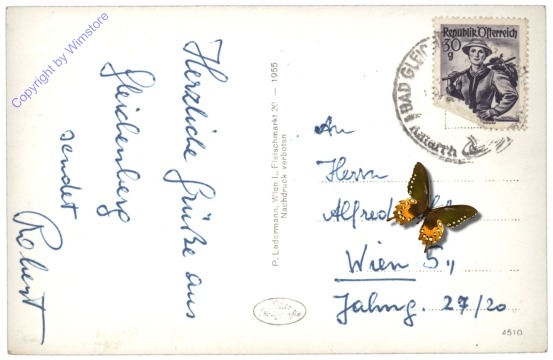 Copyright by Wimstore
Herzliche Grüße aus
Gleichenberg
sendet
Robert
P. Ledermann, Wien I., Fleischmarkt 20 — 1955
Nachdruck verboten
Republik Österreich
30
g
BAD GLEICH
An
Herrn
Alfred
Wien 5,,
Jahng. 27/20
4510